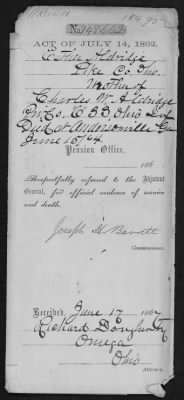 ACT OF JULY 14, 1862.
Esther Aldridge
Pike Co, Ohio
Mother of
Charles W. Aldridge
Co. E 33. Ohio
Died at Andersonville Ga
June 15/64
Pension Office,
186
Respectfully referred to the Adjutant
General, for official evidence of service
and death.
Joseph H Barrett
Commissioner.
Received, June 17 1867
Richard
Omega
Ohio
Attorney.